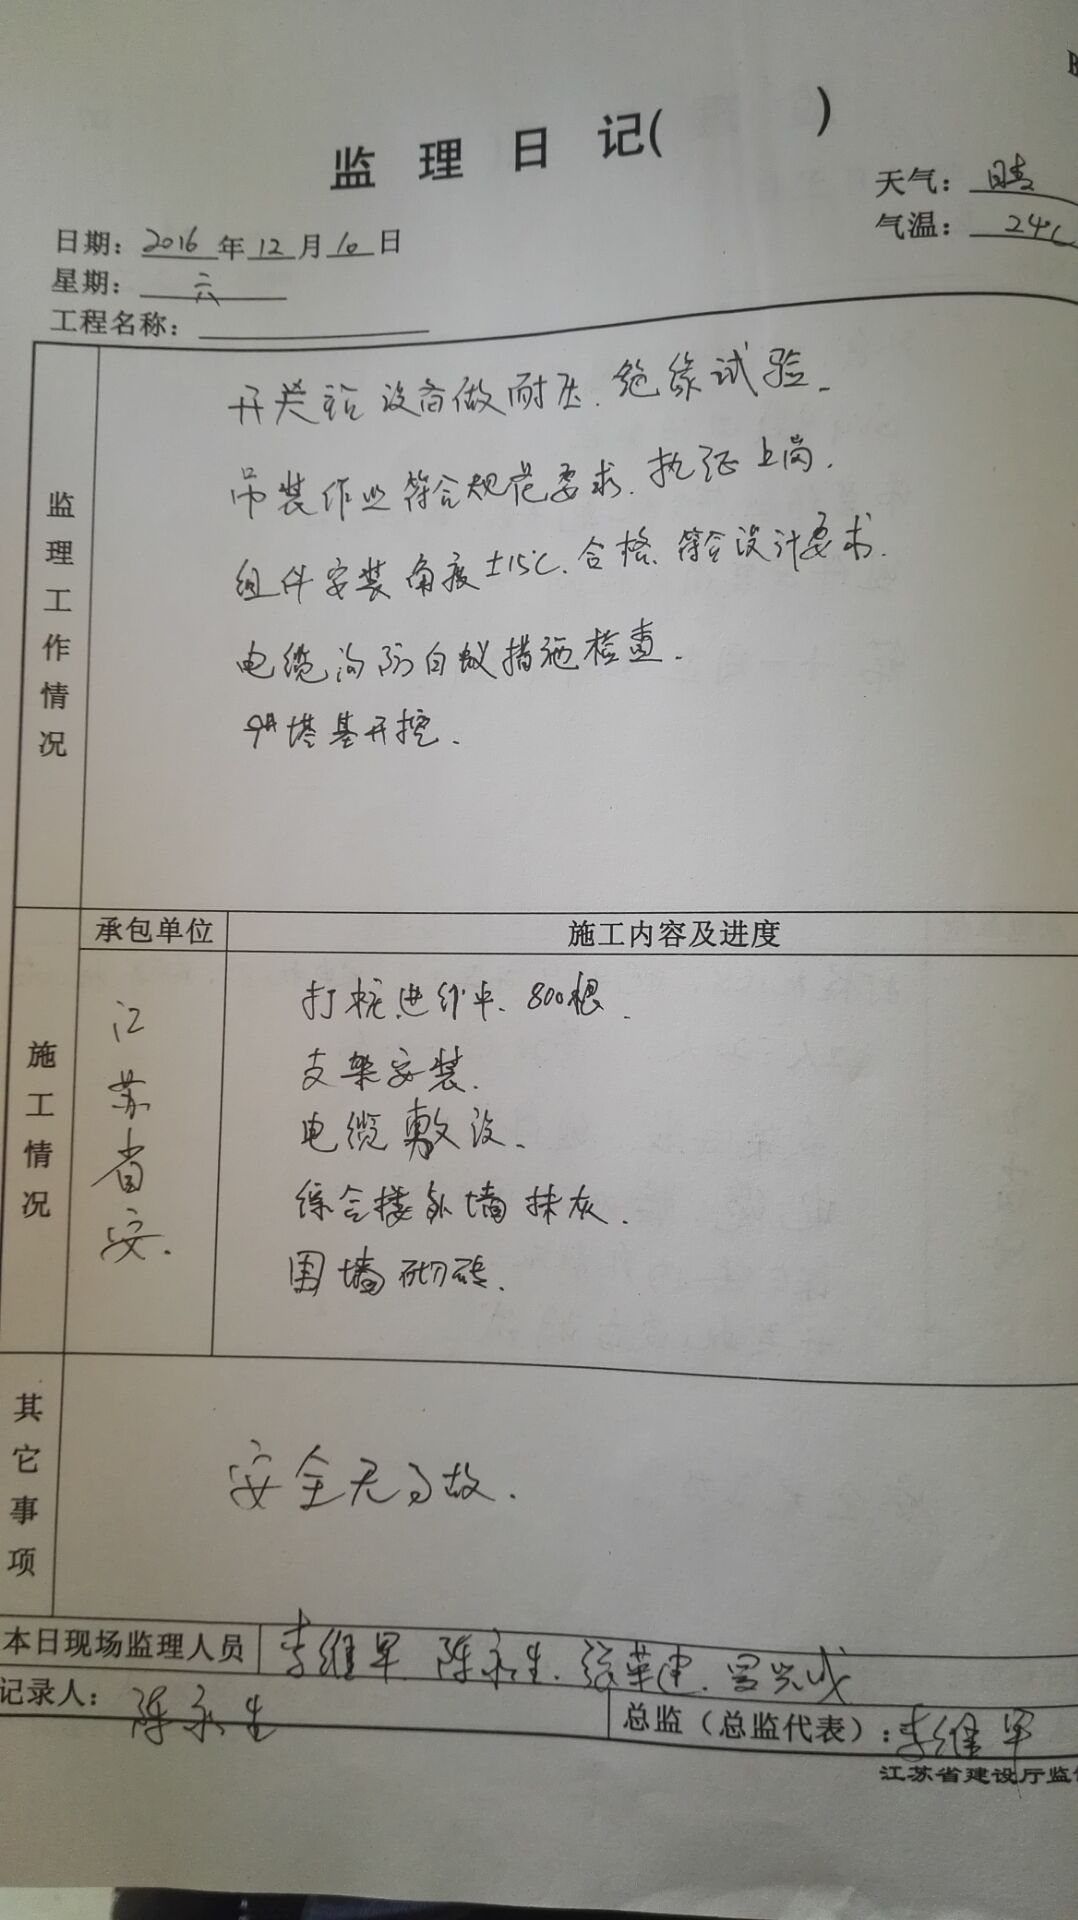 监理日记(      )
天气：晴
气温：24℃
日期：2016年12月10日
星期：六
工程名称：
监理工作情况
开关站设备做耐压、绝缘试验.
吊装作业符合规范要求、执证上岗.
组件安装角度±15℃、合格、符合设计要求.
电缆沟防白蚁措施检查.
9#塔基开挖.
承包单位 施工内容及进度
施工情况
江苏省安.
打桩进作业、800根.
支架安装.
电缆敷设.
综合楼外墙抹灰.
围墙砌砖.
其它事项
安全无事故.
本日现场监理人员 李继军、陈永生、张華建、
记录人：陈永生
总监（总监代表）：李继军
江苏省建设厅监